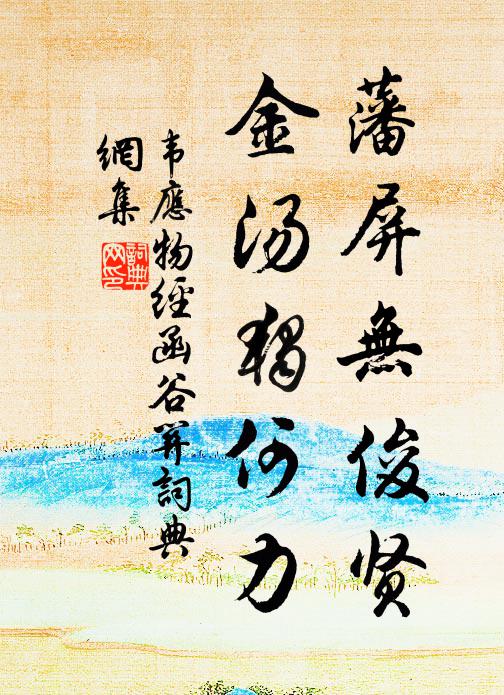 藩屏無俊贤
金汤獨何力
韦應物經函谷関詞典
網集
詞典
网印